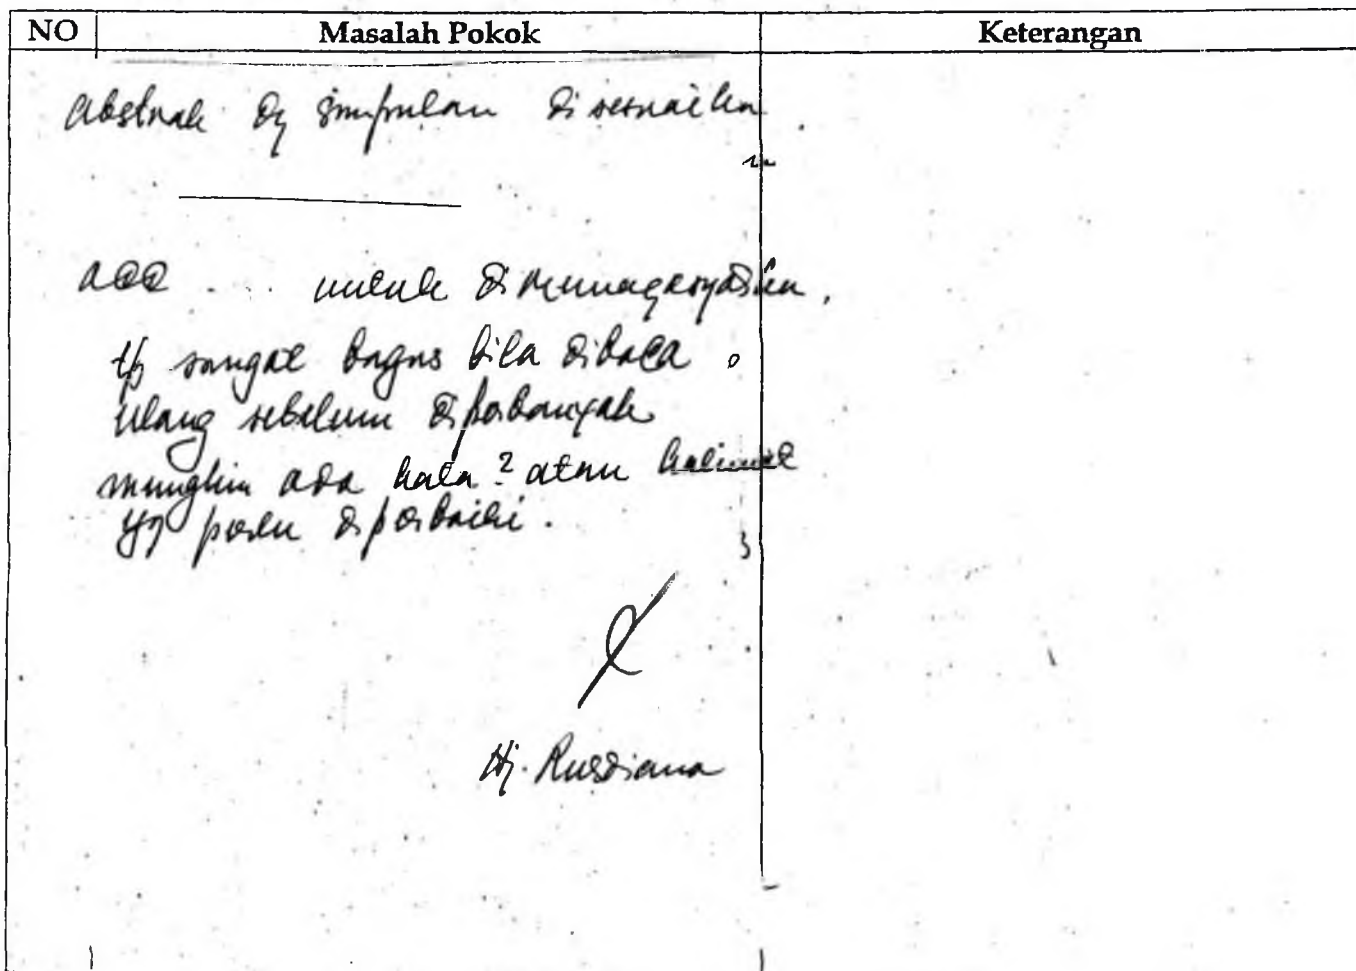 NO Masalah Pokok Keterangan
Abstrak dg simpulan disesuaikan
acc ... untuk dimunaqasyahkan.
tp sangat bagus bila dibaca
ulang sebelum diperbanyak
mungkin ada kata2 atau kalimat
yg perlu diperbaiki.
Hj. Rusdiana